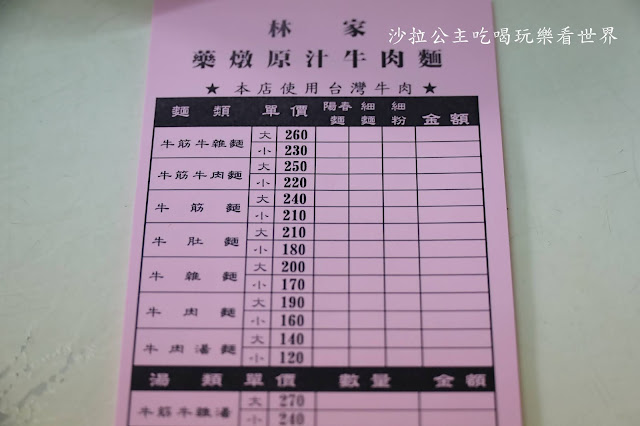 沙拉公主吃喝玩樂看世界
林家
藥燉原汁牛肉麵
★ 本店使用台灣牛肉 ★
麵類 單價 陽春麵 細麵 細粉 金額
牛筋牛雜麵 大 260
小 230
牛筋牛肉麵 大 250
小 220
牛筋麵 大 240
小 210
牛肚麵 大 210
小 180
牛雜麵 大 200
小 170
牛肉麵 大 190
小 160
牛肉湯麵 大 140
小 120
湯類 單價 數量 金額
牛筋牛雜湯 大 270
小 240